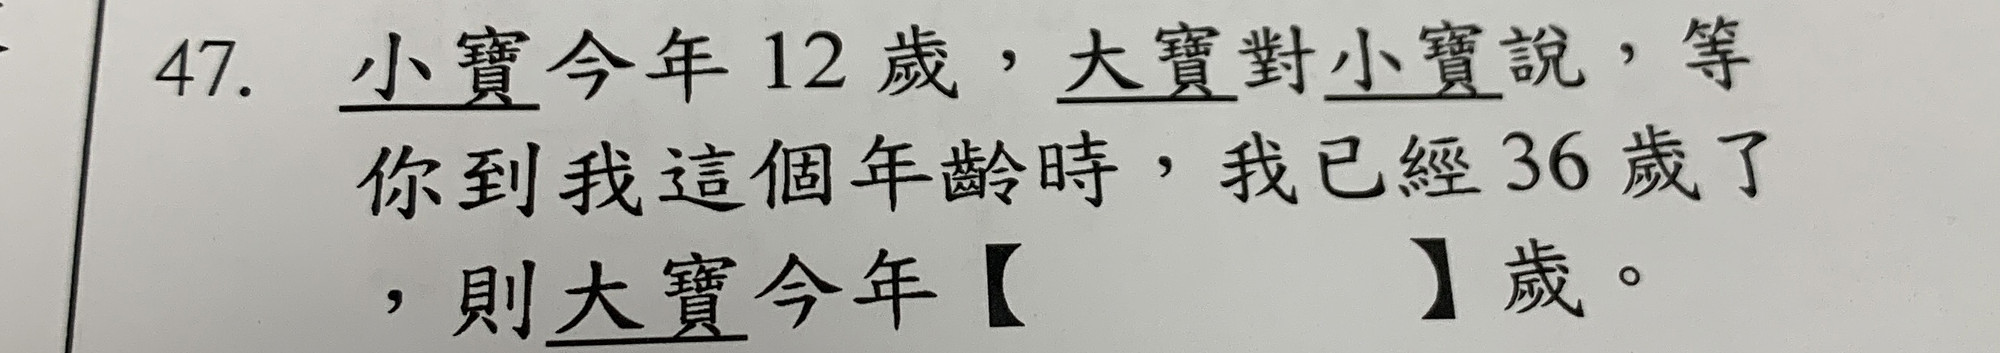 47. 小寶今年 12 歲，大寶對小寶說，等
你到我這個年齡時，我已經 36 歲了
，則大寶今年【　　　　】歲。